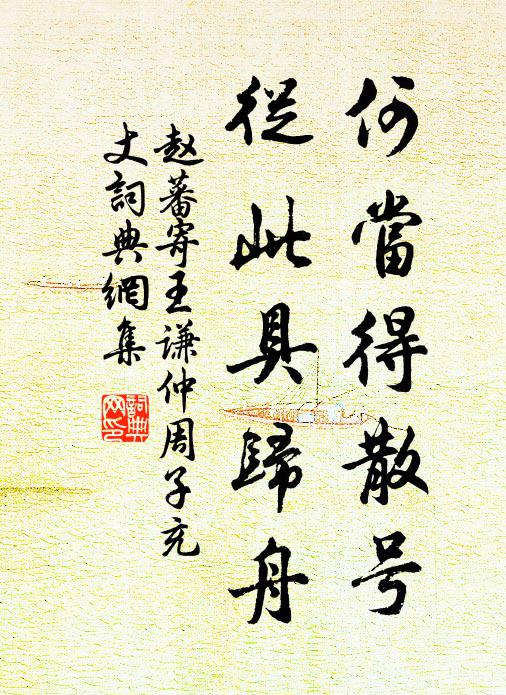 何當得散号
從此具歸舟
赵蕃寄王谦仲周子充
丈詞典網集
詞典网印